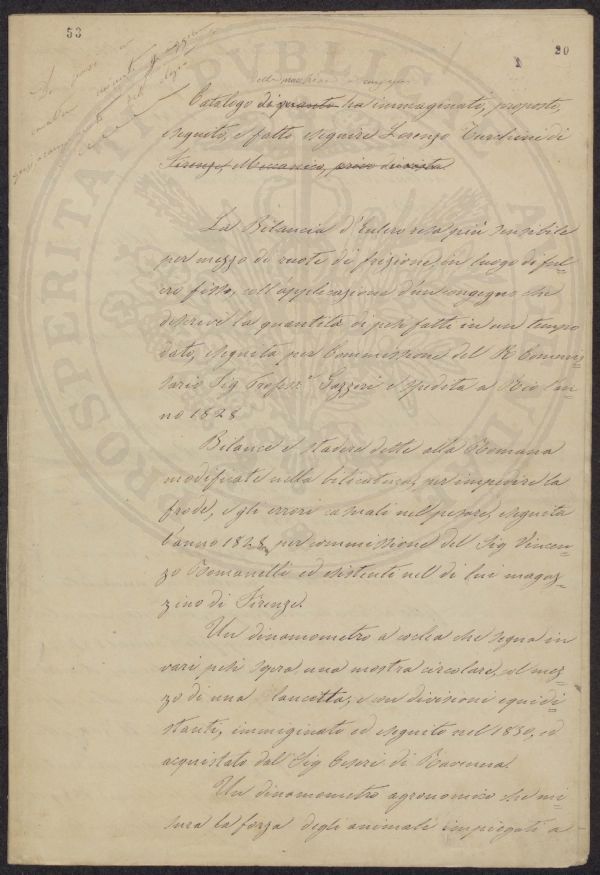 53
20
1
Catalogo di quanto ha immaginati, proposti,
eseguiti, e fatto eseguire Lorenzo Turchini di
Firenze Meccanico, privo di vista.
La Bilancia d'Eulero resa più sensibile
per mezzo di ruote di frizione, in luogo di ful=
cri fissi, coll'applicazione d'un congegno che
descrive la quantità di pesi fatti in un tempo
dato, eseguita per Commissione del R. Commis=
sario Sig. Profess.r Gazzeri e spedita a Rio l'an=
no 1828
Bilance e stadere dette alla Romana
modificate nella bilicatura, per impedire la
frode, e gli errori casuali nel pesare, eseguita
l'anno 1828, per commissione del Sig. Vincen=
zo Romanelli ed esistenti nel di lui magaz=
zino di Firenze.
Un dinamometro a coclea che segna in
vari pesi sopra una mostra circolare, col mez=
zo di una lancetta, e con divisioni equidi=
stanti, immiginato ed eseguito nel 1830, ed
acquistato dal Sig. Ceseri di Ravenna.
Un dinamometro agronomico che mi=
sura la forza degli animali impiegati a=
PROSPERITATI PUBLICAE